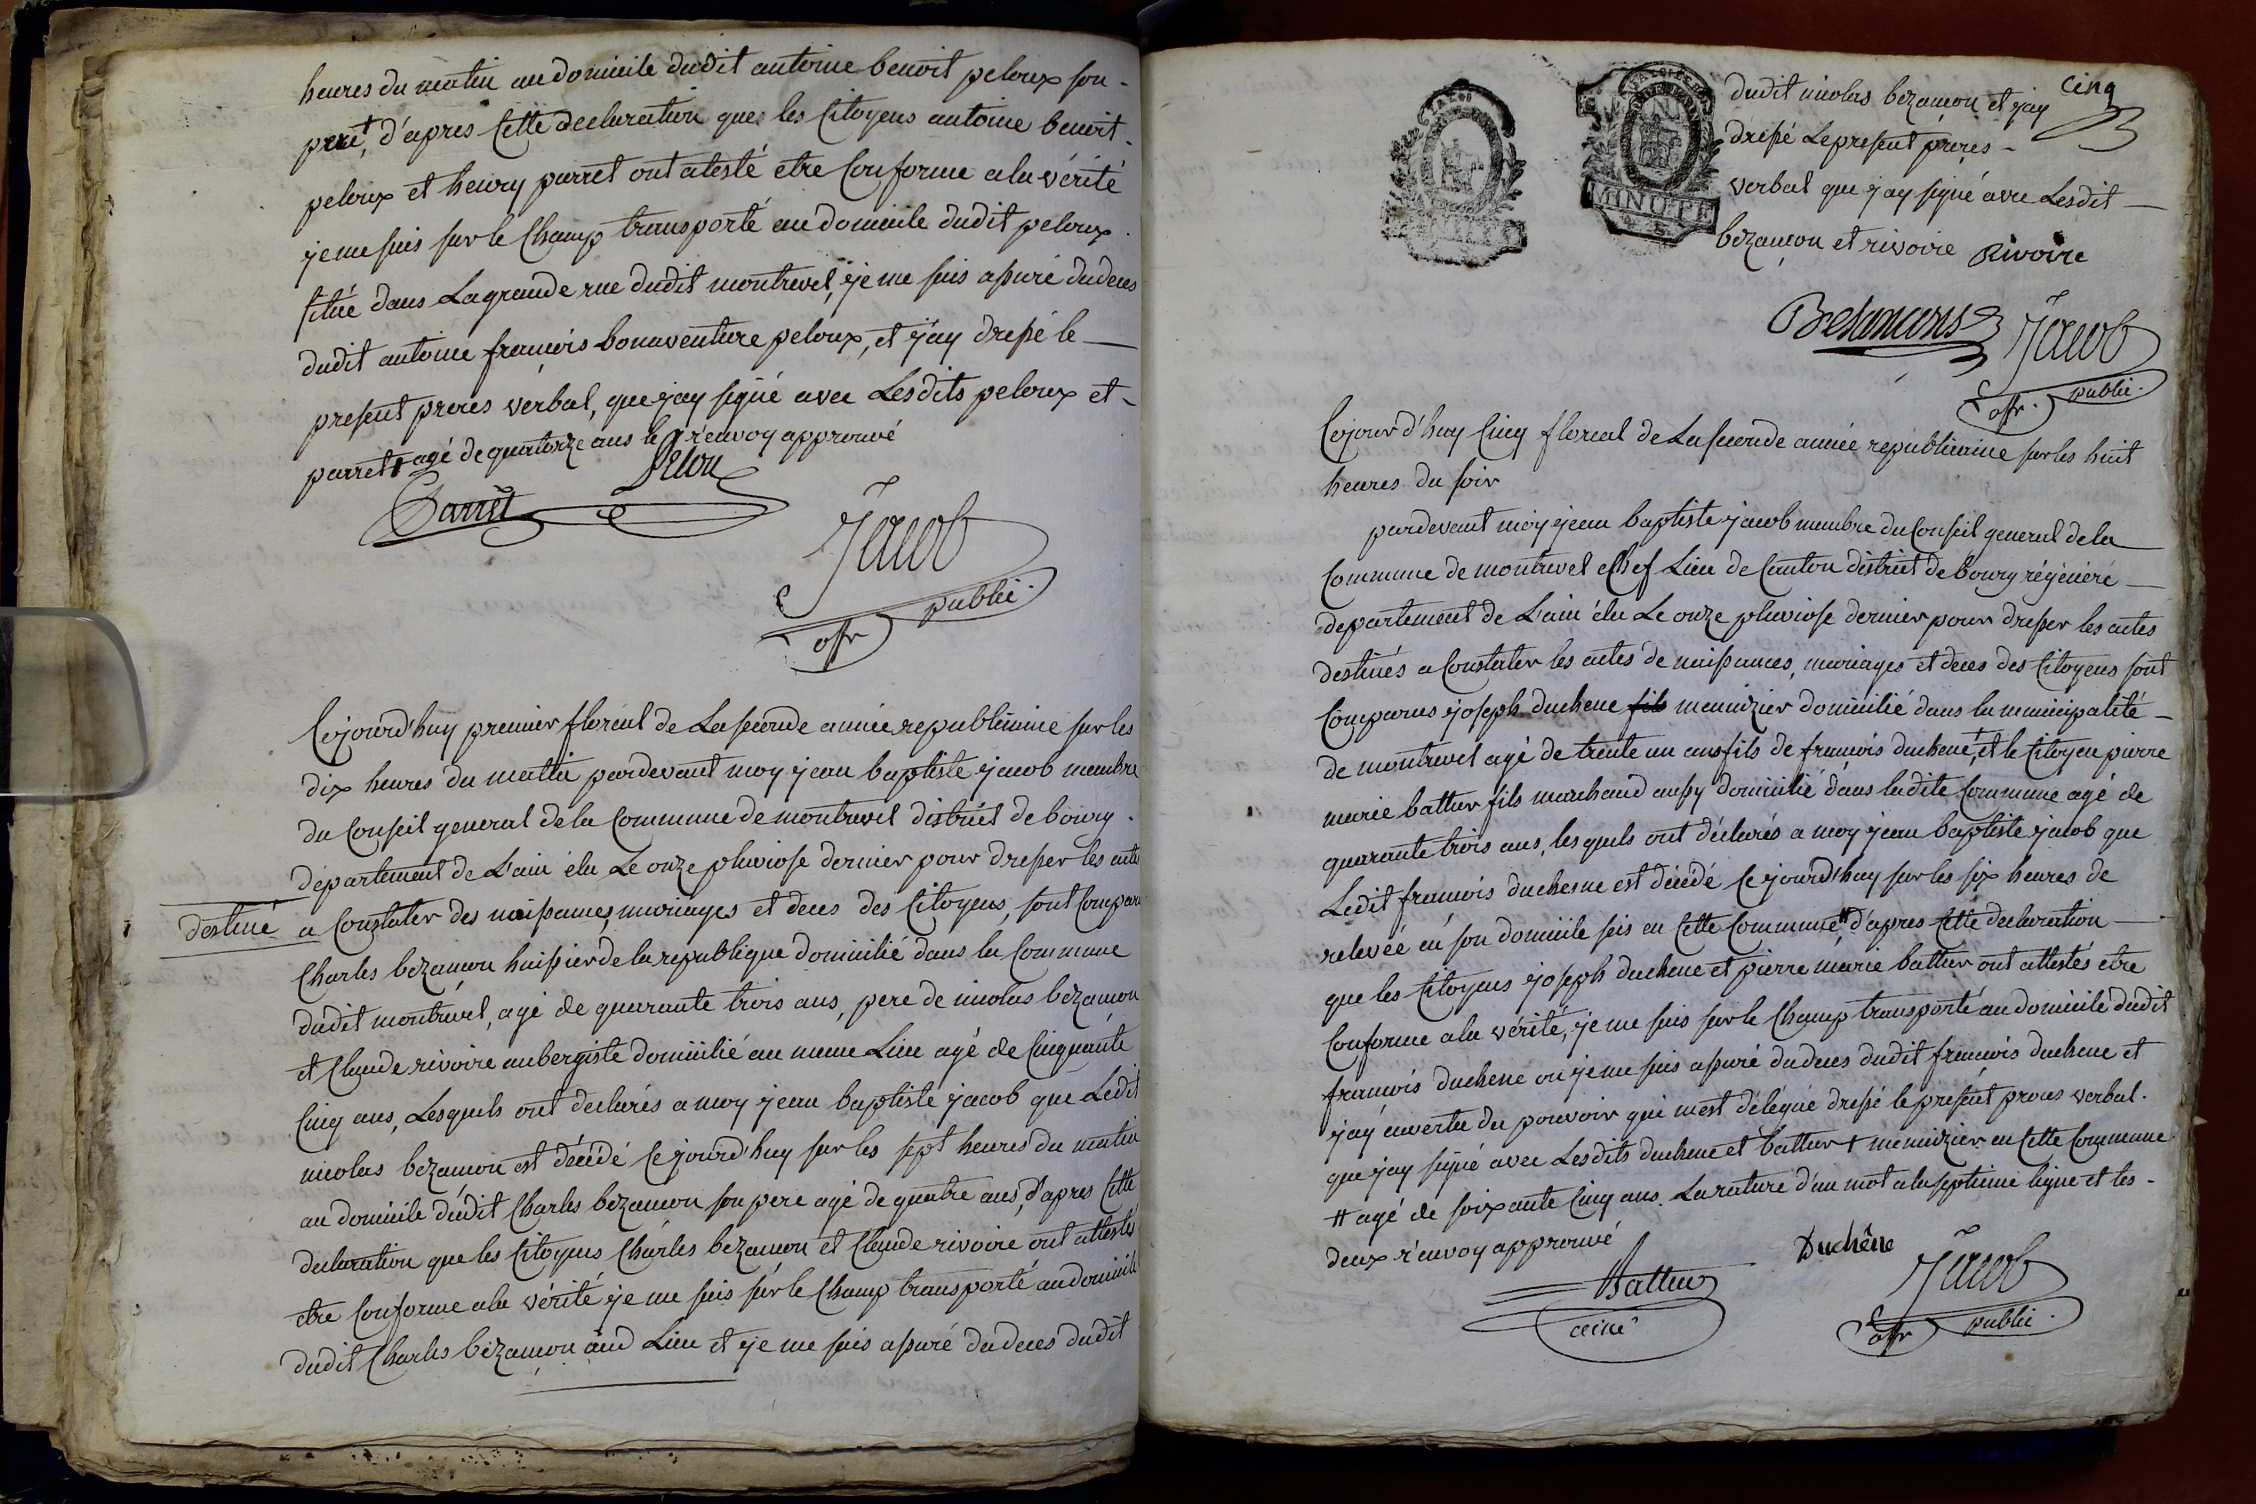 heures du matin au domicile dudit antoine benoit peloux son -
pere +, d'apres Cette declaration que les Citoyens antoine benoit -
peloux et henry parret ont atesté etre Conforme a la vérité
je me suis sur le Champ transporté au domicile dudit peloux
situé dans La grande rue dudit montrevel, je me suis assuré du deces
dudit antoine françois bonaventure peloux, et j'ay dressé le —
present proces verbal, que j'ay signé avec Lesdits peloux et -
parret + agé de quatorze ans le renvoy approuvé
Pelou
Parret
Jacob
offr public.
Cejourd'huy premier floreal de La seconde année republicaine sur les
dix heures du matin pardevant moy jean baptiste jacob membre
du Conseil general de la Commune de montrevel district de bourg.
département de L'ain élu Le onze pluviose dernier pour dresser les actes
destiné a Constater des naissances, mariages et deces des Citoyens, sont Comparu
Charles bezançon huissier de la republique domicilié dans la Commune
dudit montrevel, agé de quarante trois ans, pere de nicolas bezançon
et Claude rivoire aubergiste domicilié au meme Lieu agé de Cinquante
Cinq ans, Lesquels ont declarés a moy jean baptiste jacob que Ledit
nicolas bezançon est décédé Cejourd'huy sur les sept heures du matin
au domicile dudit Charles bezançon son pere agé de quatre ans, d'apres Cette
declaration que les Citoyens Charles bezançon et Claude rivoire ont attestés
etre Conforme a la vérité je me suis sur le Champ transporté au domicile
dudit Charles bézançon aud Lieu et je me suis assuré du deces dudit
Cinq
dudit nicolas bezançon et j'ay
dressé Le present proces -
verbal que j'ay signé avec Lesdit —
bézançon et rivoire Rivoire
MINUTE
Besancons
Jacob
offr. public.
Cejourd'huy Cinq floreal de La seconde année republicaine sur les huit
heures du soir
pardevant moy jean baptiste jacob membre du Conseil general de la
Commune de montrevel Chef Lieu de Canton district de bourg régénéré —
departement de L'ain élu Le onze pluviose dernier pour dresser les actes
destinés a Constater les actes de naissances, mariages et deces des Citoyens sont
Comparus joseph duchene fils menuizier domicilié dans la municipalité —
de montrevel agé de trente un ans fils de francois duchene +, et le Citoyen pierre
marie battur fils marchand aussy domicilié dans ladite Commune agé de
quarante trois ans, lesquels ont déclarés a moy jean baptiste jacob que
Ledit francois duchesne est décédé Cejourd'huy sur les six heures de
relevéé en son domicile sis en Cette Commune # d'apres Cette declaration —
que les Citoyens joseph duchene et pierre marie battur ont attestés etre
Conforme a la vérité, je me suis sur le Champ transporté au domicile dudit
francois duchene ou je me suis assuré du deces dudit francois duchene et
j'ay en vertu du pouvoir qui m'est délégué dressé le present proces verbal.
que j'ay signé avec Lesdits duchene et battur + menuizier en Cette Commune
# agé de soixante Cinq ans. La rature d'un mot a la septieme ligne et les -
deux renvoy approuvé
Duchêne
Battur
ainé
Jacob
offr public.